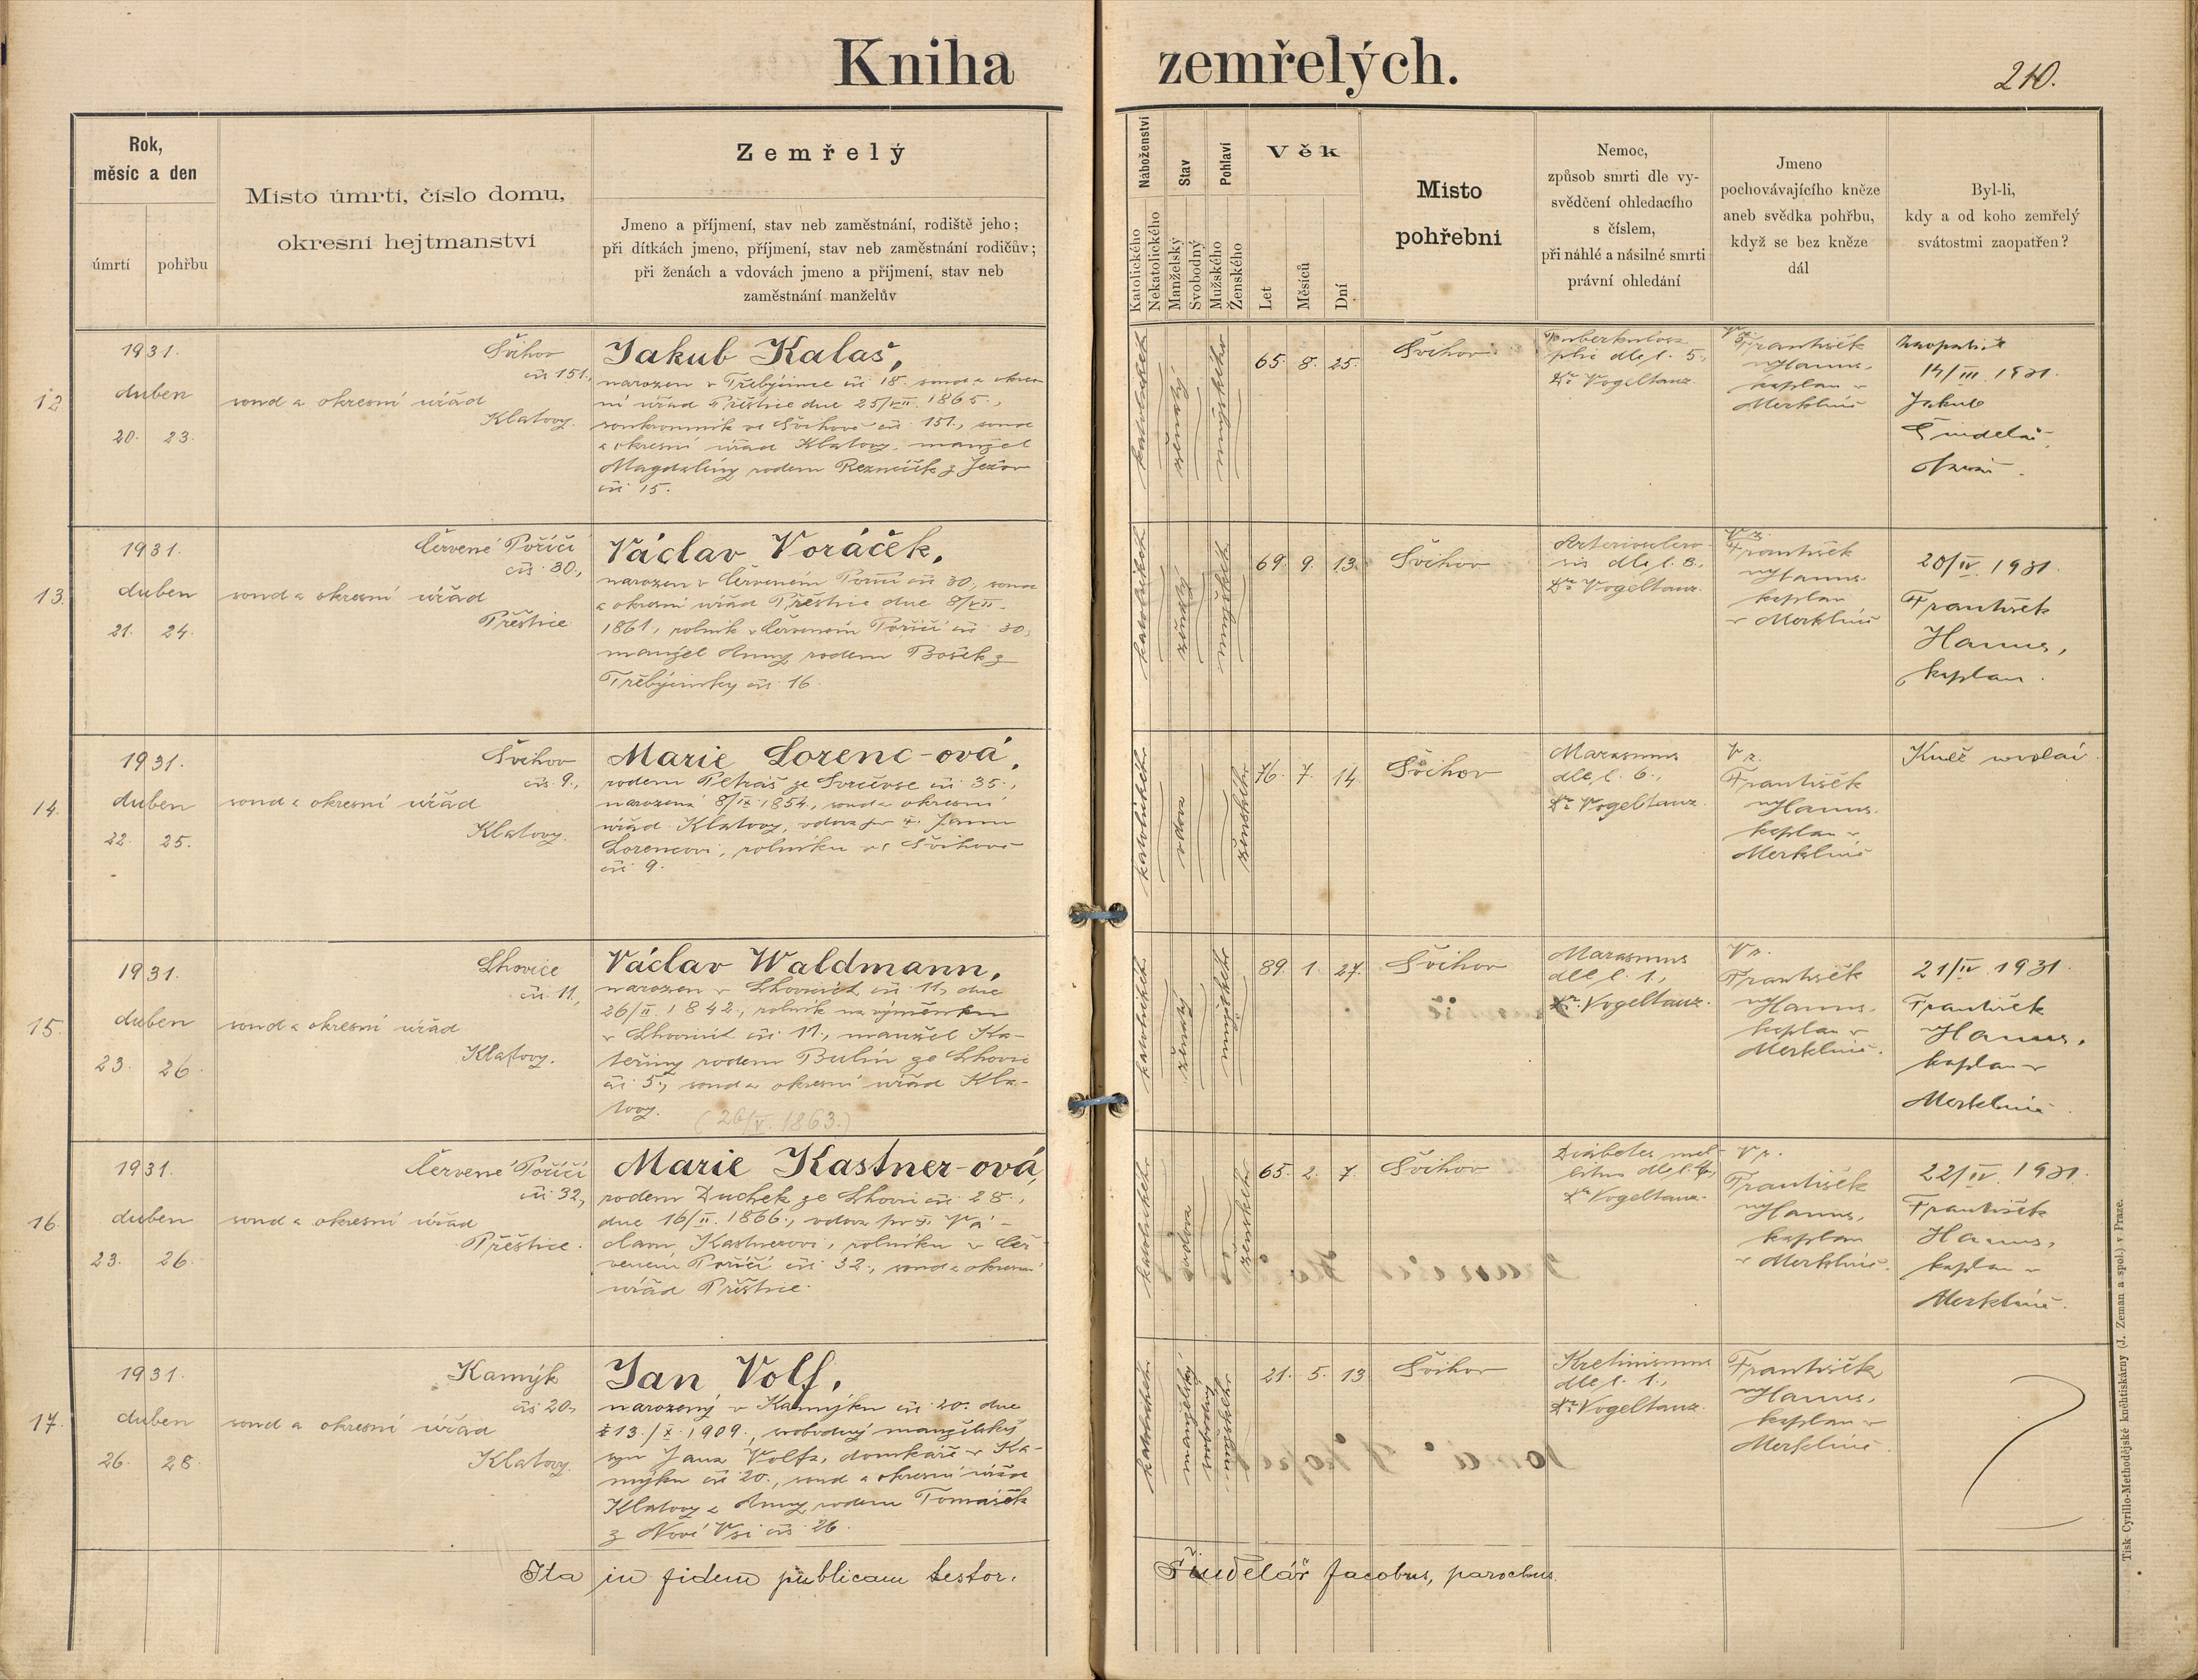 Kniha zemřelých.
210.
Rok,
měsíc a den
úmrtí
pohřbu
Místo úmrtí, číslo domu,
okresní hejtmanství
Zemřelý
Jmeno a příjmení, stav neb zaměstnání, rodiště jeho;
při dítkách jmeno, příjmení, stav neb zaměstnání rodičův;
při ženách a vdovách jmeno a příjmení, stav neb
zaměstnání manželův
Náboženství
Katolického
Nekatolického
Stav
Manželský
Svobodný
Pohlaví
Mužského
Ženského
Věk
Let
Měsíců
Dní
Místo
pohřební
Nemoc,
způsob smrti dle vy-
svědčení ohledacího
s číslem,
při náhlé a násilné smrti
právní ohledání
Jmeno
pochovávajícího kněze
aneb svědka pohřbu,
když se bez kněze
dál
Byl-li,
kdy a od koho zemřelý
svátostmi zaopatřen?
12.
1931.
duben
20. 23.
Švihov
čís 151.,
soud a okresní úřad
Klatovy.
Jakub Kalaš,
narozen v Třebýcince čís 18. soud a okres-
ní úřad Přeštice dne 25/VII. 1865.,
soukromník ve Švihově čís 151., soud
a okresní úřad Klatovy, manžel
Magdalény rodem Rezníček z Ježov
čís 15.
katolického
ženatý
mužského
65. 8. 25.
Švihov
Tuberkulosa
plic dle č. 5.,
Dr Vogeltanz.
Vz.
František
Hanus,
kaplan v
Merklíně
Zaopatřil
14/III. 1931.
Jakub
Šindelář,
farář.
13.
1931.
duben
21. 24.
Červené Poříčí
čís. 30.,
soud a okresní úřad
Přeštice
Václav Voráček,
narozen v Červeném Poříčí čís 30, soud
a okresní úřad Přeštice dne 8/VII.
1861, rolník v Červeném Poříčí čís 30,
manžel Anny rodem Bošek z
Třebýcinky čís 16.
katolického
ženatý
mužského
69. 9. 13.
Švihov
Arteriosclero-
sis dle č. 3.,
Dr Vogeltanz.
Vz.
František
Hanus.
kaplan
v Merklíně
20/IV. 1931.
František
Hanus,
kaplan.
14.
1931.
duben
22. 25.
Švihov
čís. 9.,
soud a okresní úřad
Klatovy.
Marie Lorenc-ová,
rodem Petráš ze Svrčovse čís 35.,
narozená 8/IX. 1854., soud a okresní
úřad Klatovy, vdova po † Janu
Lorencovi, rolníku ve Švihově
čís 9.
katolického
vdova
ženského
76. 7. 14.
Švihov
Marasmus
dle č. 6.,
Dr Vogeltanz.
Vz.
František
Hanus.
kaplan v
Merklíně
Kněz volán
15.
1931.
duben
23. 26.
Lhovice
čís 11.,
soud a okresní úřad
Klatovy.
Václav Waldmann,
narozen v Lhovicích čís 11., dne
26/II. 1842., rolník na výměnku
v Lhovicích čís 11., manžel Ka-
teřiny rodem Bulín ze Lhovic
čís 5., soud a okresní úřad Kla-
tovy.
(26/V. 1863.)
katolického
ženatý
mužského
89. 1. 27.
Švihov
Marasmus
dle č. 1.,
Dr. Vogeltanz.
Vz.
František
Hanus.
kaplan v
Merklíně.
21/IV. 1931.
František
Hanus,
kaplan v
Merklíně.
16.
1931.
duben
23. 26.
Červené Poříčí
čís 32.,
soud a okresní úřad
Přeštice.
Marie Kastner-ová,
rodem Duchek ze Lhovic čís 28.,
dne 16/II. 1866., vdova po † Vá-
clavu Kastnerovi, rolníku v Čer-
veném Poříčí čís 32., soud a okresní
úřad Přeštice.
katolického
vdova
ženského
65. 2. 7.
Švihov
Diabetes mel-
litus dle č. 6,
Dr Vogeltanz.
Vz.
František
Hanus,
kaplan
v Merklíně.
22/IV. 1931.
František
Hanus,
kaplan v
Merklíně.
17.
1931.
duben
26. 28.
Kamýk
čís 20.,
soud a okresní úřad
Klatovy.
Jan Volf,
narozený v Kamýku čís 20. dne
13./X. 1909., svobodný manželský
syn Jana Volfa, domkáře v Ka-
mýku čís 20., soud a okresní úřad
Klatovy a Anny rodem Tomášek
z Nové Vsi čís 26.
katolického
manželský
svobodný
mužského
21. 5. 13.
Švihov
Kretinismus
dle č. 1.,
Dr Vogeltanz.
František
Hanus,
kaplan v
Merklíně.
?
Ita in fidem publicam testor.
Šindelář Jacobus, parochus.
Tisk Cyrillo-Methodějské kněhtiskárny (J. Zeman a spol.) v Praze.